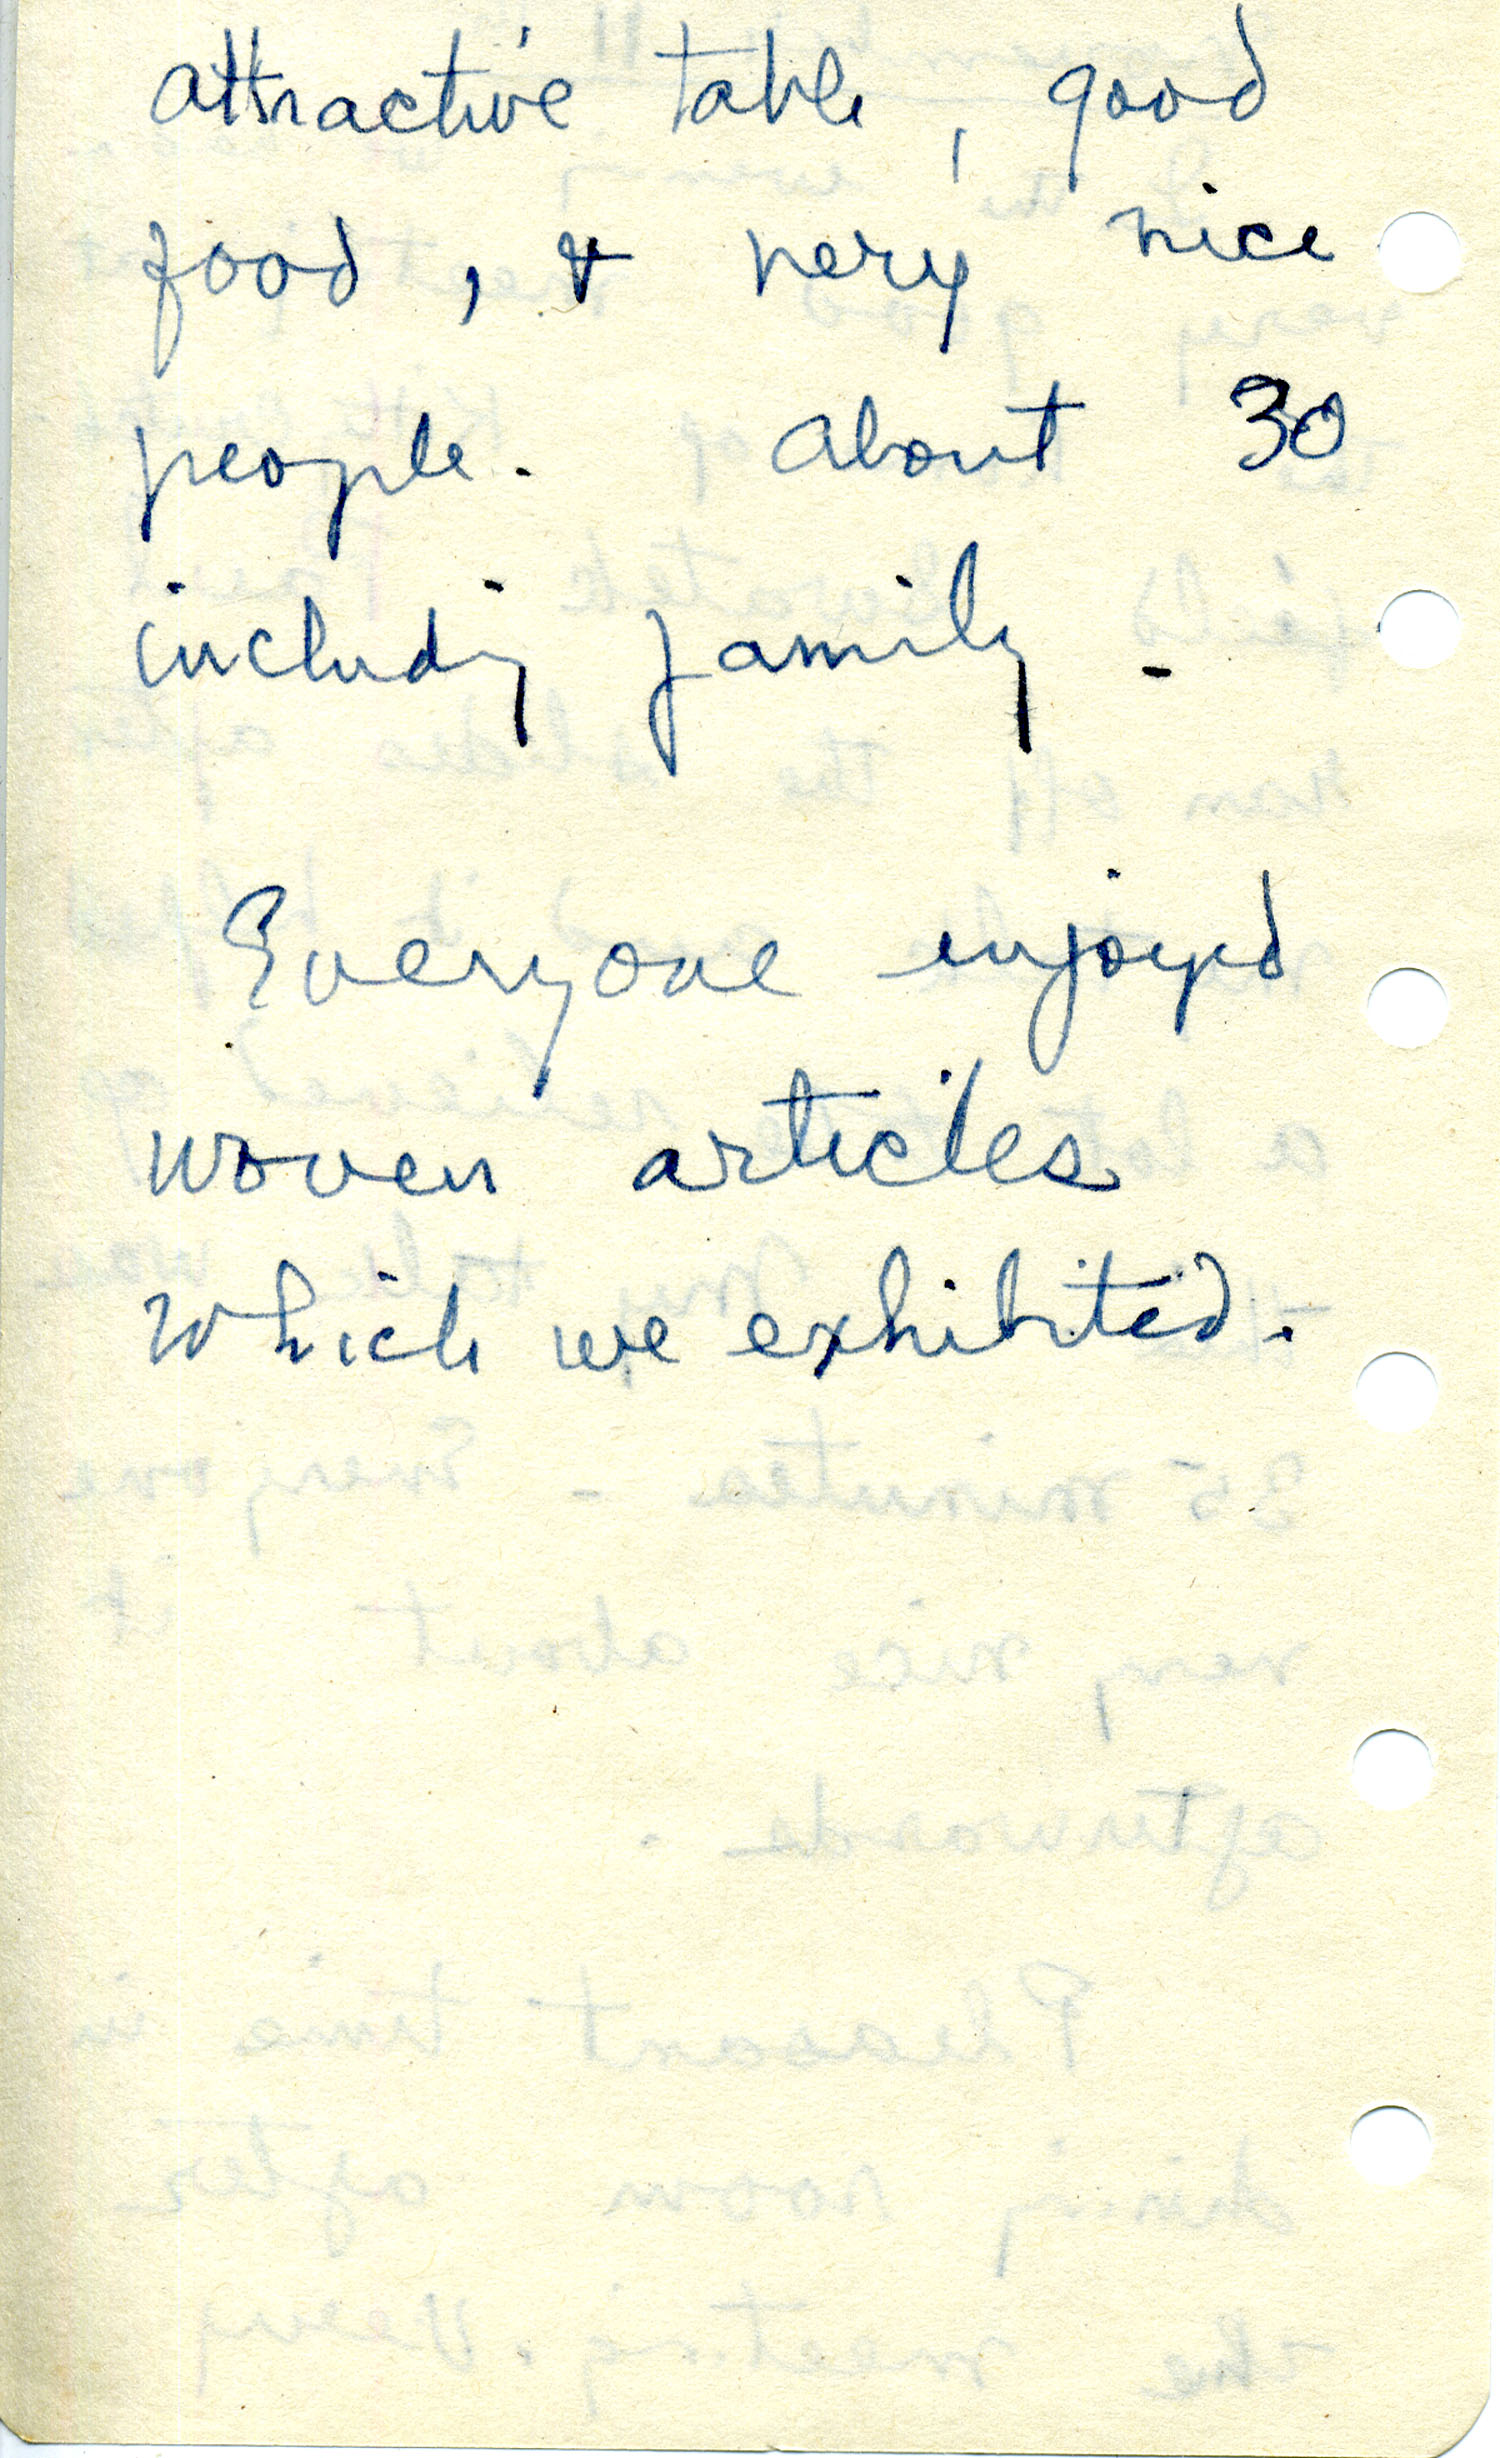 attractive table, good
food, & very nice
people. About 30
including family.
Everyone enjoyed
woven articles
which we exhibited.